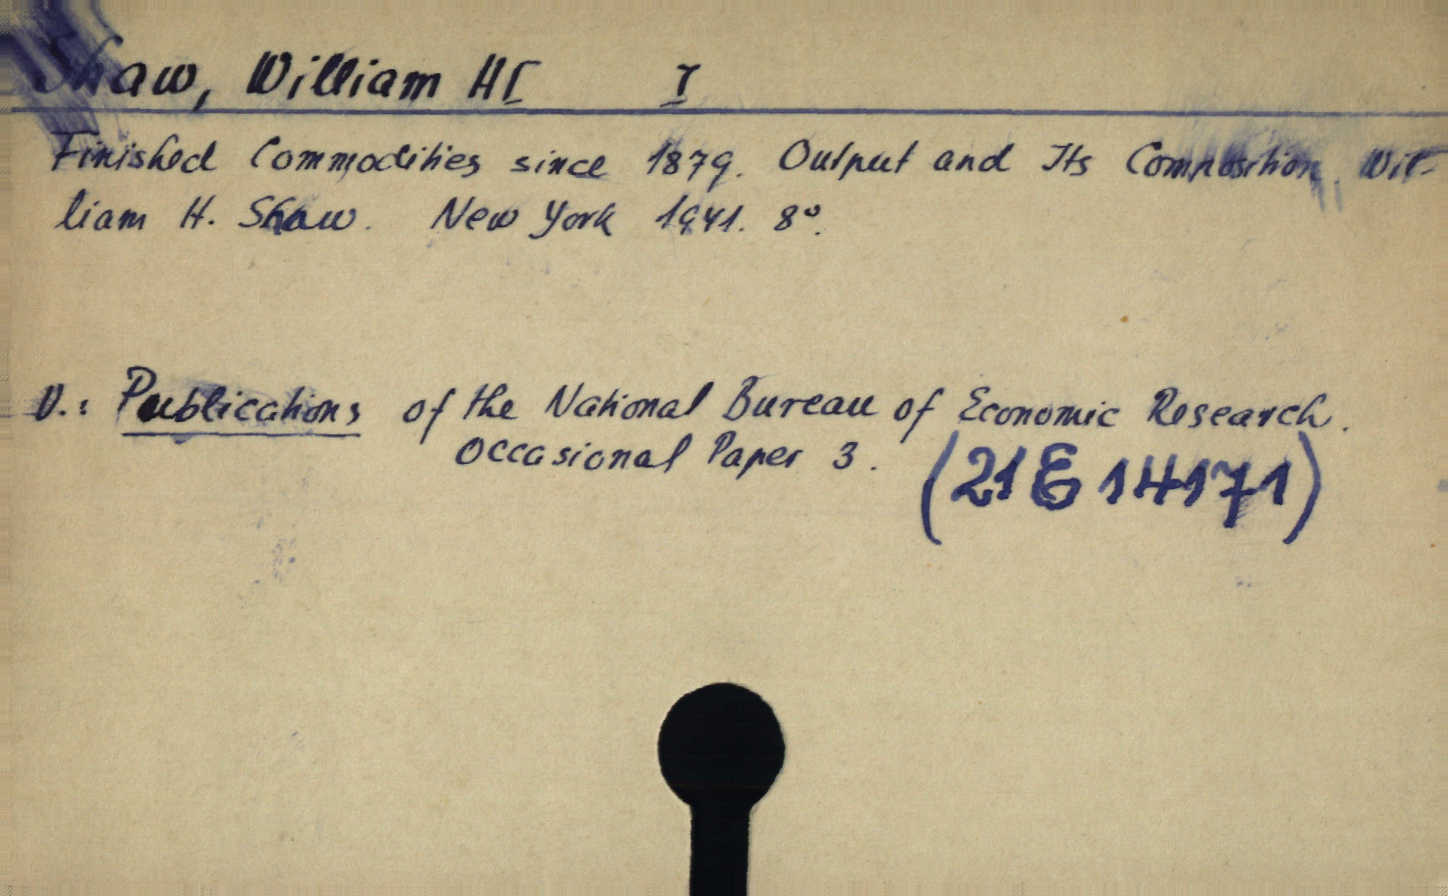 Shaw, William H[ I
Finished Commodities since 1879. Output and Its Composition. Wil-
liam H. Shaw. New York 1941. 8°.
V.: Publications of the National Bureau of Economic Research.
Occasional Paper 3.
(21 E 14171)